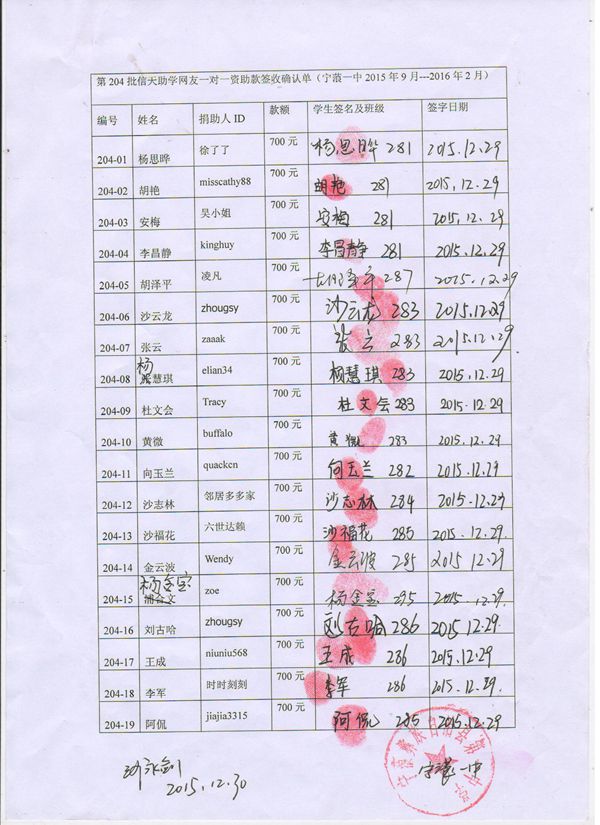 第 204 批信天助学网友一对一资助款签收确认单（宁蒗一中 2015 年 9 月---2016 年 2 月）
编号 姓名 捐助人 ID 款额 学生签名及班级 签字日期
204-01 杨思晔 徐了了 700 元 杨思晔 281 2015.12.29
204-02 胡艳 misscathy88 700 元 胡艳 281 2015.12.29
204-03 安梅 吴小姐 700 元 安梅 281 2015.12.29
204-04 李昌静 kinghuy 700 元 李昌静 281 2015.12.29
204-05 胡泽平 凌凡 700 元 胡泽平 287 2015.12.29
204-06 沙云龙 zhougsy 700 元 沙云龙 283 2015.12.29
204-07 张云 zaaak 700 元 张云 283 2015.12.29
204-08 杨慧琪 elian34 700 元 杨慧琪 283 2015.12.29
204-09 杜文会 Tracy 700 元 杜文会 283 2015.12.29
204-10 黄微 buffalo 700 元 黄微 283 2015.12.29
204-11 向玉兰 quackcn 700 元 向玉兰 282 2015.12.29
204-12 沙志林 邻居多多家 700 元 沙志林 284 2015.12.29
204-13 沙福花 六世达赖 700 元 沙福花 285 2015.12.29
204-14 金云波 Wendy 700 元 金云波 285 2015.12.29
204-15 杨金宝 zoe 700 元 杨金宝 295 2015.12.29.
204-16 刘古哈 zhougsy 700 元 刘古哈 286 2015.12.29.
204-17 王成 niuniu568 700 元 王成 286 2015.12.29.
204-18 李军 时时刻刻 700 元 李军 286 2015.12.29.
204-19 阿侃 jiajia3315 700 元 阿侃 285 2015.12.29
2015.12.30
宁蒗一中